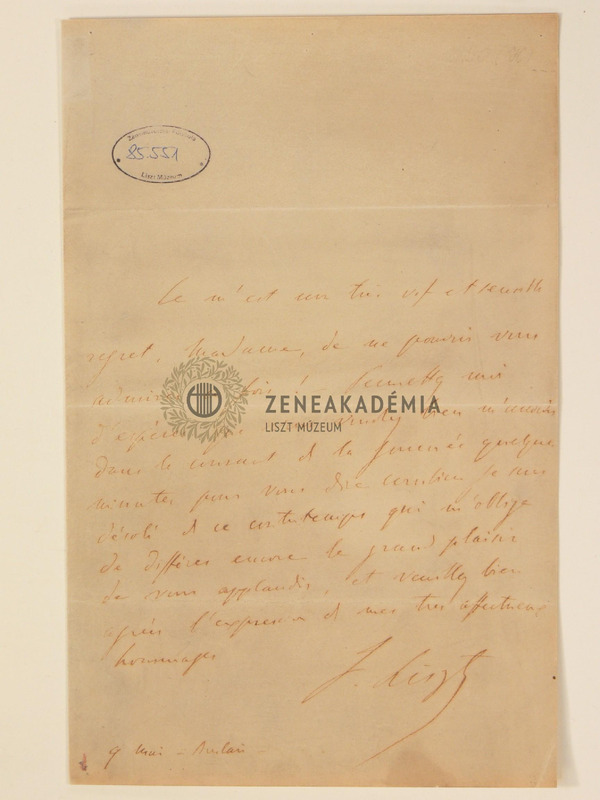 85.551
Liszt Múzeum
Ce m'est un très vif et sensible
regret, Madame, de ne pouvoir vous
admirer Permettez moi
d'espérer que vous voudrez bien m'accorder
dans le courant de la journée quelques
minutes pour vous dire combien je suis
désolé de ce contretemps qui m'oblige
de différer encore le grand plaisir
de vous applaudir, et veuillez bien
agréer l'expression de mes très affectueux
hommages
F. Liszt
9 mai –
ZENEAKADÉMIA
LISZT MÚZEUM